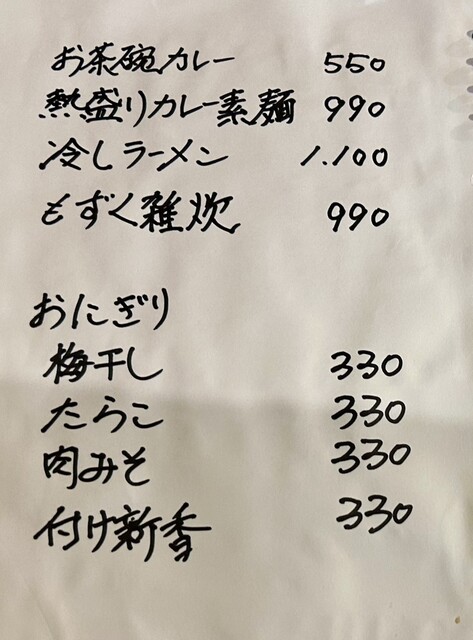 お茶碗カレー 550
熱盛りカレー素麺 990
冷しラーメン 1.100
もずく雑炊 990
おにぎり
梅干し 330
たらこ 330
肉みそ 330
付け新香 330